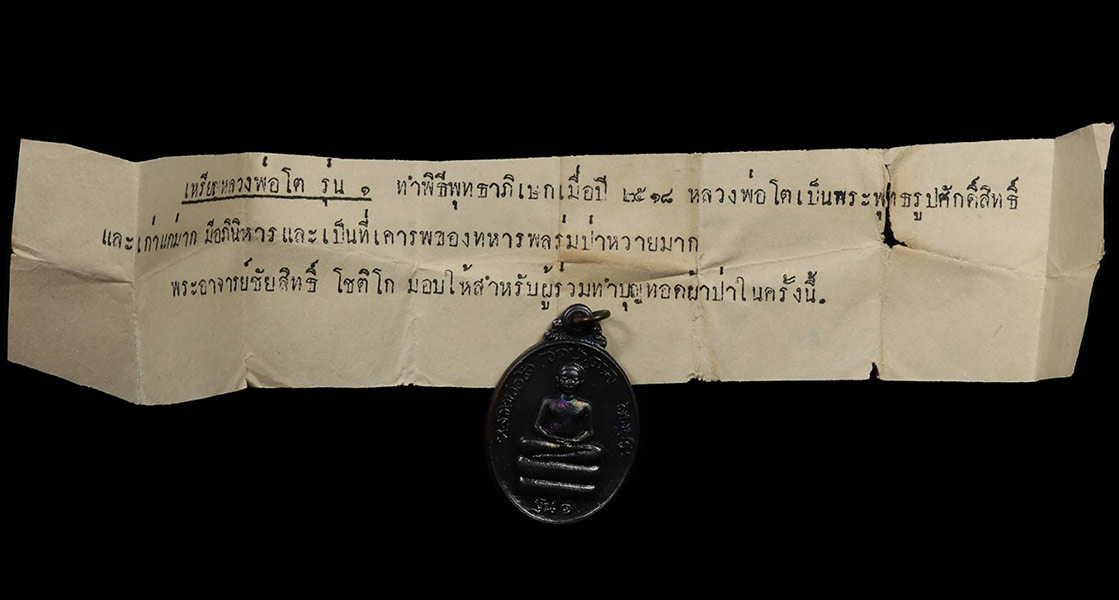 เหรียญหลวงพ่อโต รุ่น ๑ ทำพิธีพุทธาภิเษกเมื่อปี ๒๕๑๘ หลวงพ่อโตเป็นพระพุทธรูปศักดิ์สิทธิ์
และเก่าแก่มาก มีอภินิหาร และเป็นที่เคารพของทหารพลร่มป่าหวายมาก
พระอาจารย์ชัยสิทธิ์ โชติโก มอบให้สำหรับผู้ร่วมทำบุญทอดผ้าป่าในครั้งนี้.
หลวงพ่อโต
รุ่น ๑